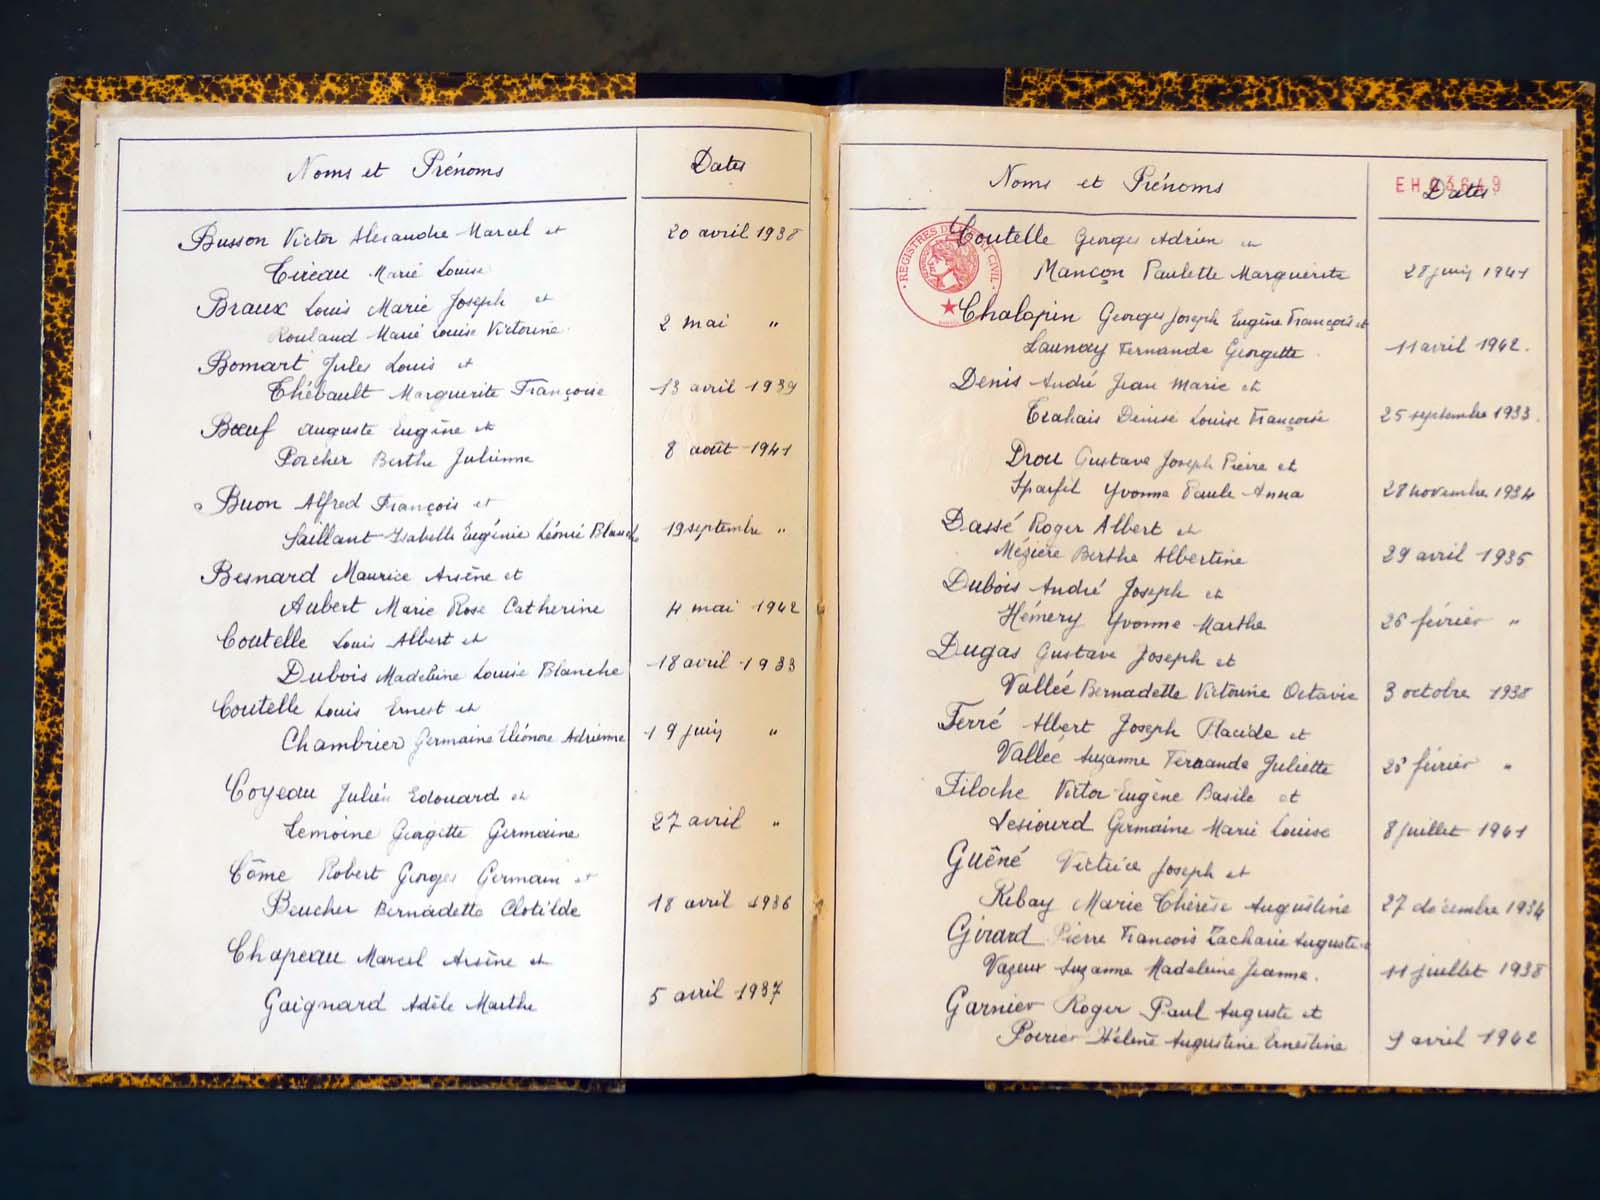 Noms et Prénoms
Dates
Busson Victor Alexandre Marcel et
20 avril 1938
Cireau Marie Louise
Braux Louis Marie Joseph et
Rouland Marie Louise Victorine
2 mai "
Bomart Jules Louis et
Thébault Marguerite Françoise
13 avril 1939
Bœuf Auguste Eugène et
Porcher Berthe Julienne
8 août 1941
Buon Alfred François et
Saillant Isabelle Eugénie Léonie Blanche
19 septembre "
Besnard Maurice Arsène et
Aubert Marie Rose Catherine
4 mai 1942
Coutelle Louis Albert et
Dubois Madeleine Louise Blanche
18 avril 1933
Coutelle Louis Ernest et
Chambrier Germaine Eléonore Adrienne
19 juin "
Coyeau Julien Edouard et
Lemoine Georgette Germaine
27 avril "
Côme Robert Georges Germain et
Beucher Bernadette Clotilde
18 avril 1936
Chapeau Marcel Arsène et
Gaignard Adèle Marthe
5 avril 1937
Noms et Prénoms
EH03649
Dates
REGISTRES DE L'ETAT CIVIL
Coutelle Georges Adrien et
Mançon Paulette Marguerite
28 juin 1941
Chalopin Georges Joseph Eugène François et
Launay Fernande Georgette
11 avril 1942.
Denis André Jean Marie et
Trahais Denise Louise Françoise
25 septembre 1933.
Drou Gustave Joseph Pierre et
Sparfel Yvonne Paule Anna
28 novembre 1934
Dassé Roger Albert et
Mézière Berthe Albertine
29 avril 1935
Dubois André Joseph et
Hémery Yvonne Marthe
26 février "
Dugas Gustave Joseph et
Vallée Bernadette Victorine Octavie
3 octobre 1938
Ferré Albert Joseph Placide et
Vallée Suzanne Fernande Juliette
février "
Filoche Victor Eugène Basile et
Lesiourd Germaine Marie Louise
8 juillet 1941
Guêné Joseph et
Rebay Marie Thérèse Augustine
27 décembre 1934
Girard Pierre François Zacharie Auguste et
Vazeux Suzanne Madeleine Jeanne.
11 juillet 1938
Garnier Roger Paul Auguste et
Poirier Hélène Augustine Ernestine
9 avril 1942